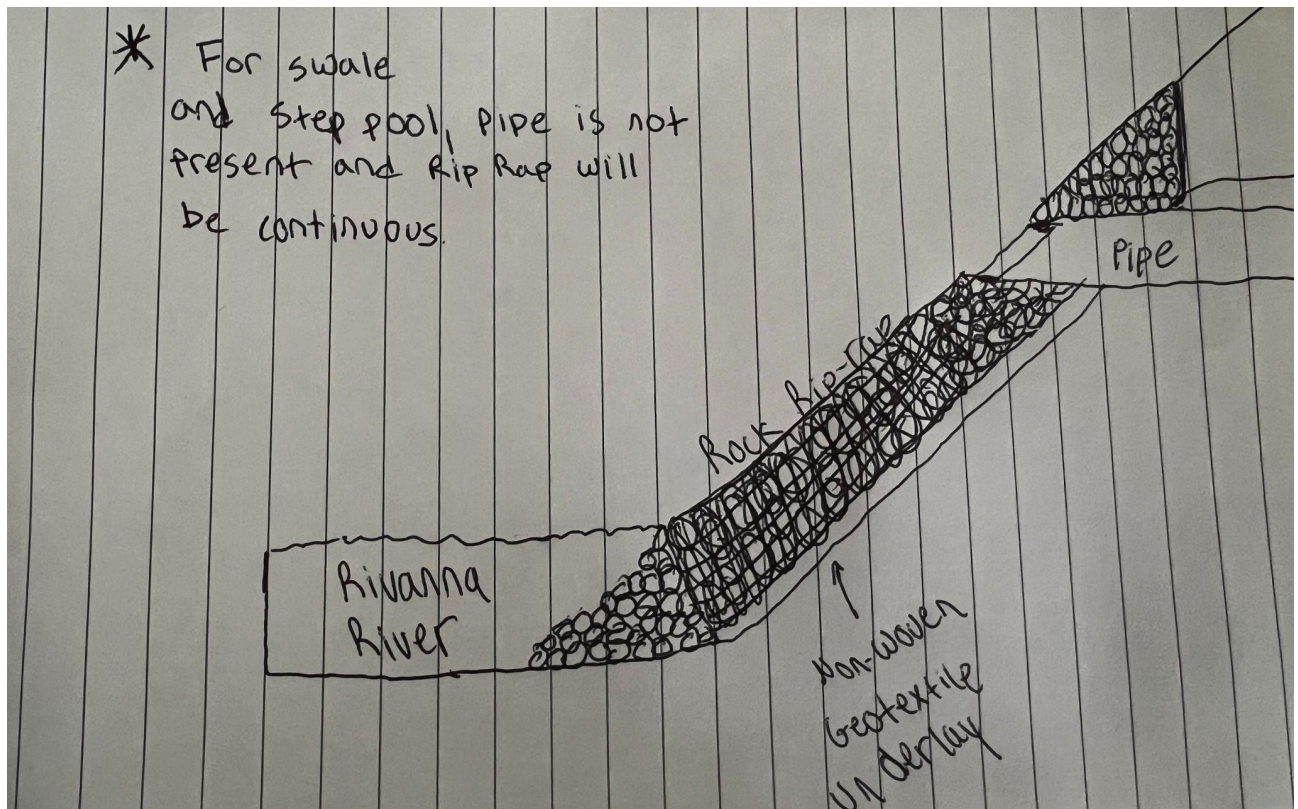 * For swale
and step pool, pipe is not
present and Rip Rap will
be continuous.
Pipe
Rock Rip-rap
Rivanna
River
Non-woven
Geotextile
Underlay